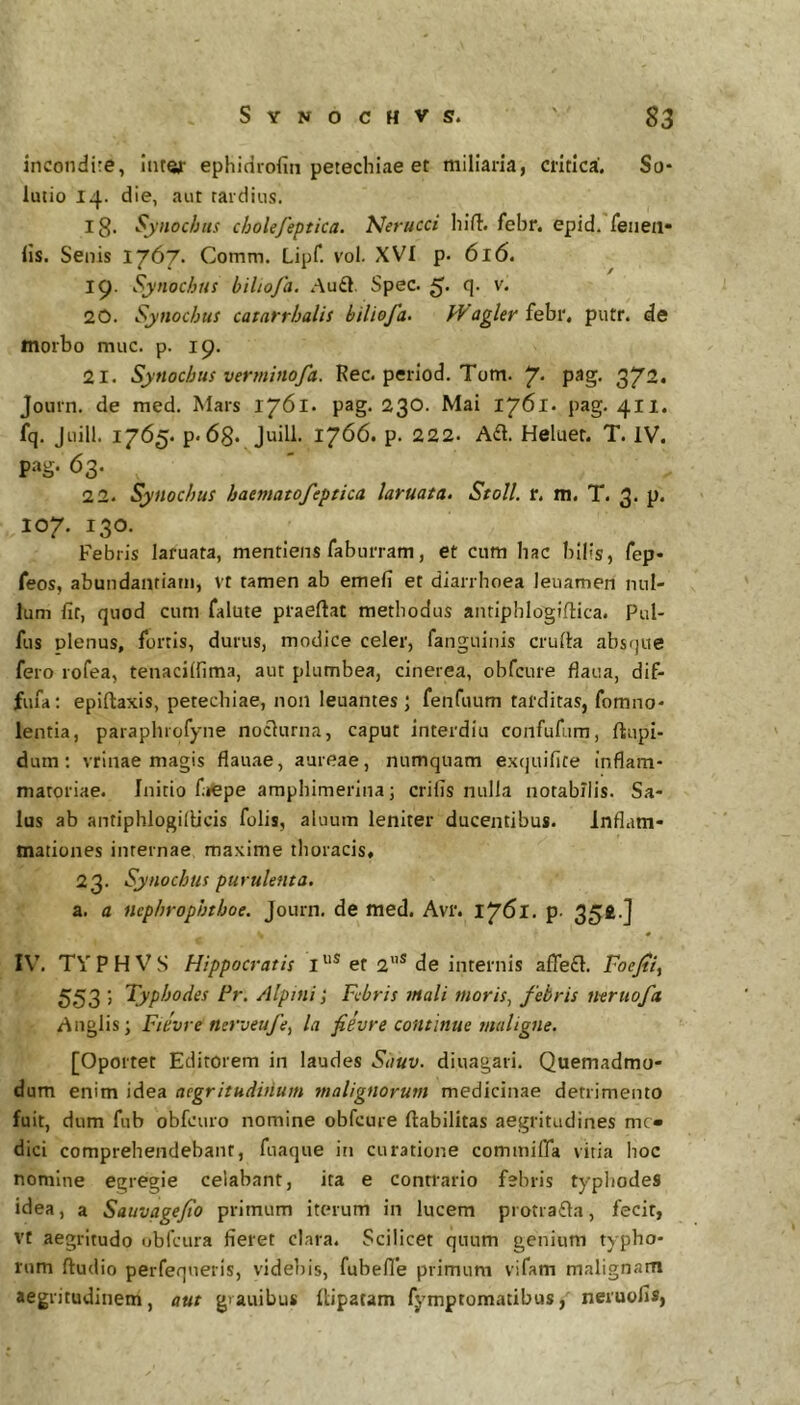 SYNOCHVS. 83
incondite, inter ephidrosin petechiae et miliaria, critica. So-
lutio 14. die, aut tardius.
18. Synochus choleſeptica. Nerucci hiſt. febr. epid. ſenen-
ſis. Senis 1767. Comm. Lipſ. vol. XVI p. 616.
19. Synochus bilioſa. Auct. Spec. 5. q. v.
20. Synochus catarrhalis bilioſa. Wagler febr. putr. de
morbo muc. p. 19.
21. Synochus verminoſa. Rec. period. Tom. 7. pag. 372.
Journ. de med. Mars 1761. pag. 230. Mai 1761. pag. 411.
ſq. Juill. 1765. p. 68. Juill. 1766. p. 222. Act. Heluet. T. IV.
pag. 63.
22. Synochus haematoſeptica laruata. Stoll. r. m. T. 3. p.
107. 130.
Febris laruata, mentiens ſaburram, et cum hac bilis, ſep-
ſeos, abundantiam, vt tamen ab emeſi et diarrhoea leuamen nul-
lum ſit, quod cum ſalute praeſtat methodus antiphlogiſtica. Pul-
ſus plenus, fortis, durus, modice celer, ſanguinis cruſta absque
ſero roſea, tenaciſſima, aut plumbea, cinerea, obſcure flaua, dif-
fuſa: epiſtaxis, petechiae, non leuantes; ſenſuum tarditas, ſomno-
lentia, paraphroſyne nocturna, caput interdiu confuſum, ſtupi-
dum: vrinae magis flauae, aureae, numquam exquiſite inflam-
matoriae. Initio ſaepe amphimerina; criſis nulla notabilis. Sa-
lus ab antiphlogiſticis ſolis, aluum leniter ducentibus. Inflam-
mationes internae maxime thoracis.
23. Synochus purulenta.
a. a nephrophthoe. Journ. de med. Avr. 1761. p. 352.]
IV. TYPHVS Hippocratis 1us et 2us de internis affect. Foeſii,
553; Typhodes Pr. Alpini; Febris mali moris, febris neruoſa
Anglis; Fièvre nerveuſe, la fièvre continue maligne.
[Oportet Editorem in laudes Sauv. diuagari. Quemadmo-
dum enim idea aegritudinum malignorum medicinae detrimento
fuit, dum ſub obſcuro nomine obſcure ſtabilitas aegritudines me-
dici comprehendebant, ſuaque in curatione commiſſa vitia hoc
nomine egregie celabant, ita e contrario febris typhodes
idea, a Sauvageſio primum iterum in lucem protracta, fecit,
vt aegritudo obſcura fieret clara. Scilicet quum genium typho-
rum ſtudio perſequeris, videbis, ſubeſſe primum viſam malignam
aegritudinem, aut grauibus ſtipatam ſymptomatibus, neruoſis,